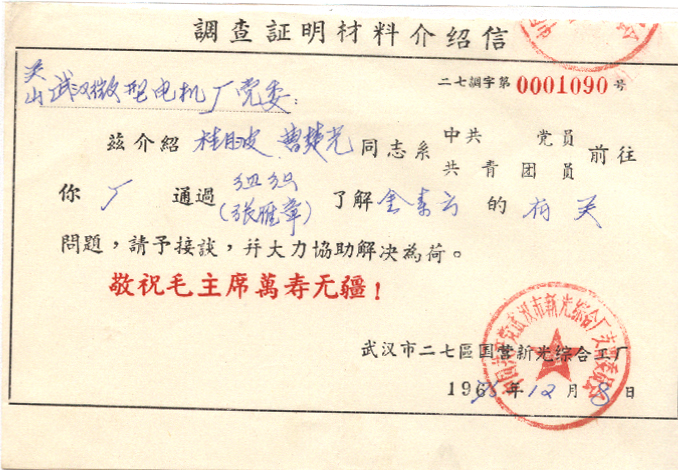 調查証明材料介绍信
二七調字第0001090号
武汉微型电机厂党委：
兹介紹 桂 曹楚光 同志系 中共 党員 前往
共青团員
你 厂 通過 组织 了解 金 云 的 有关
（张雁章）
問題，請予接談，幷大力協助解决為荷。
敬祝毛主席萬寿无疆！
武汉市二七區国营新光綜合工厂
196 年12月8日
武汉市新光綜合厂支